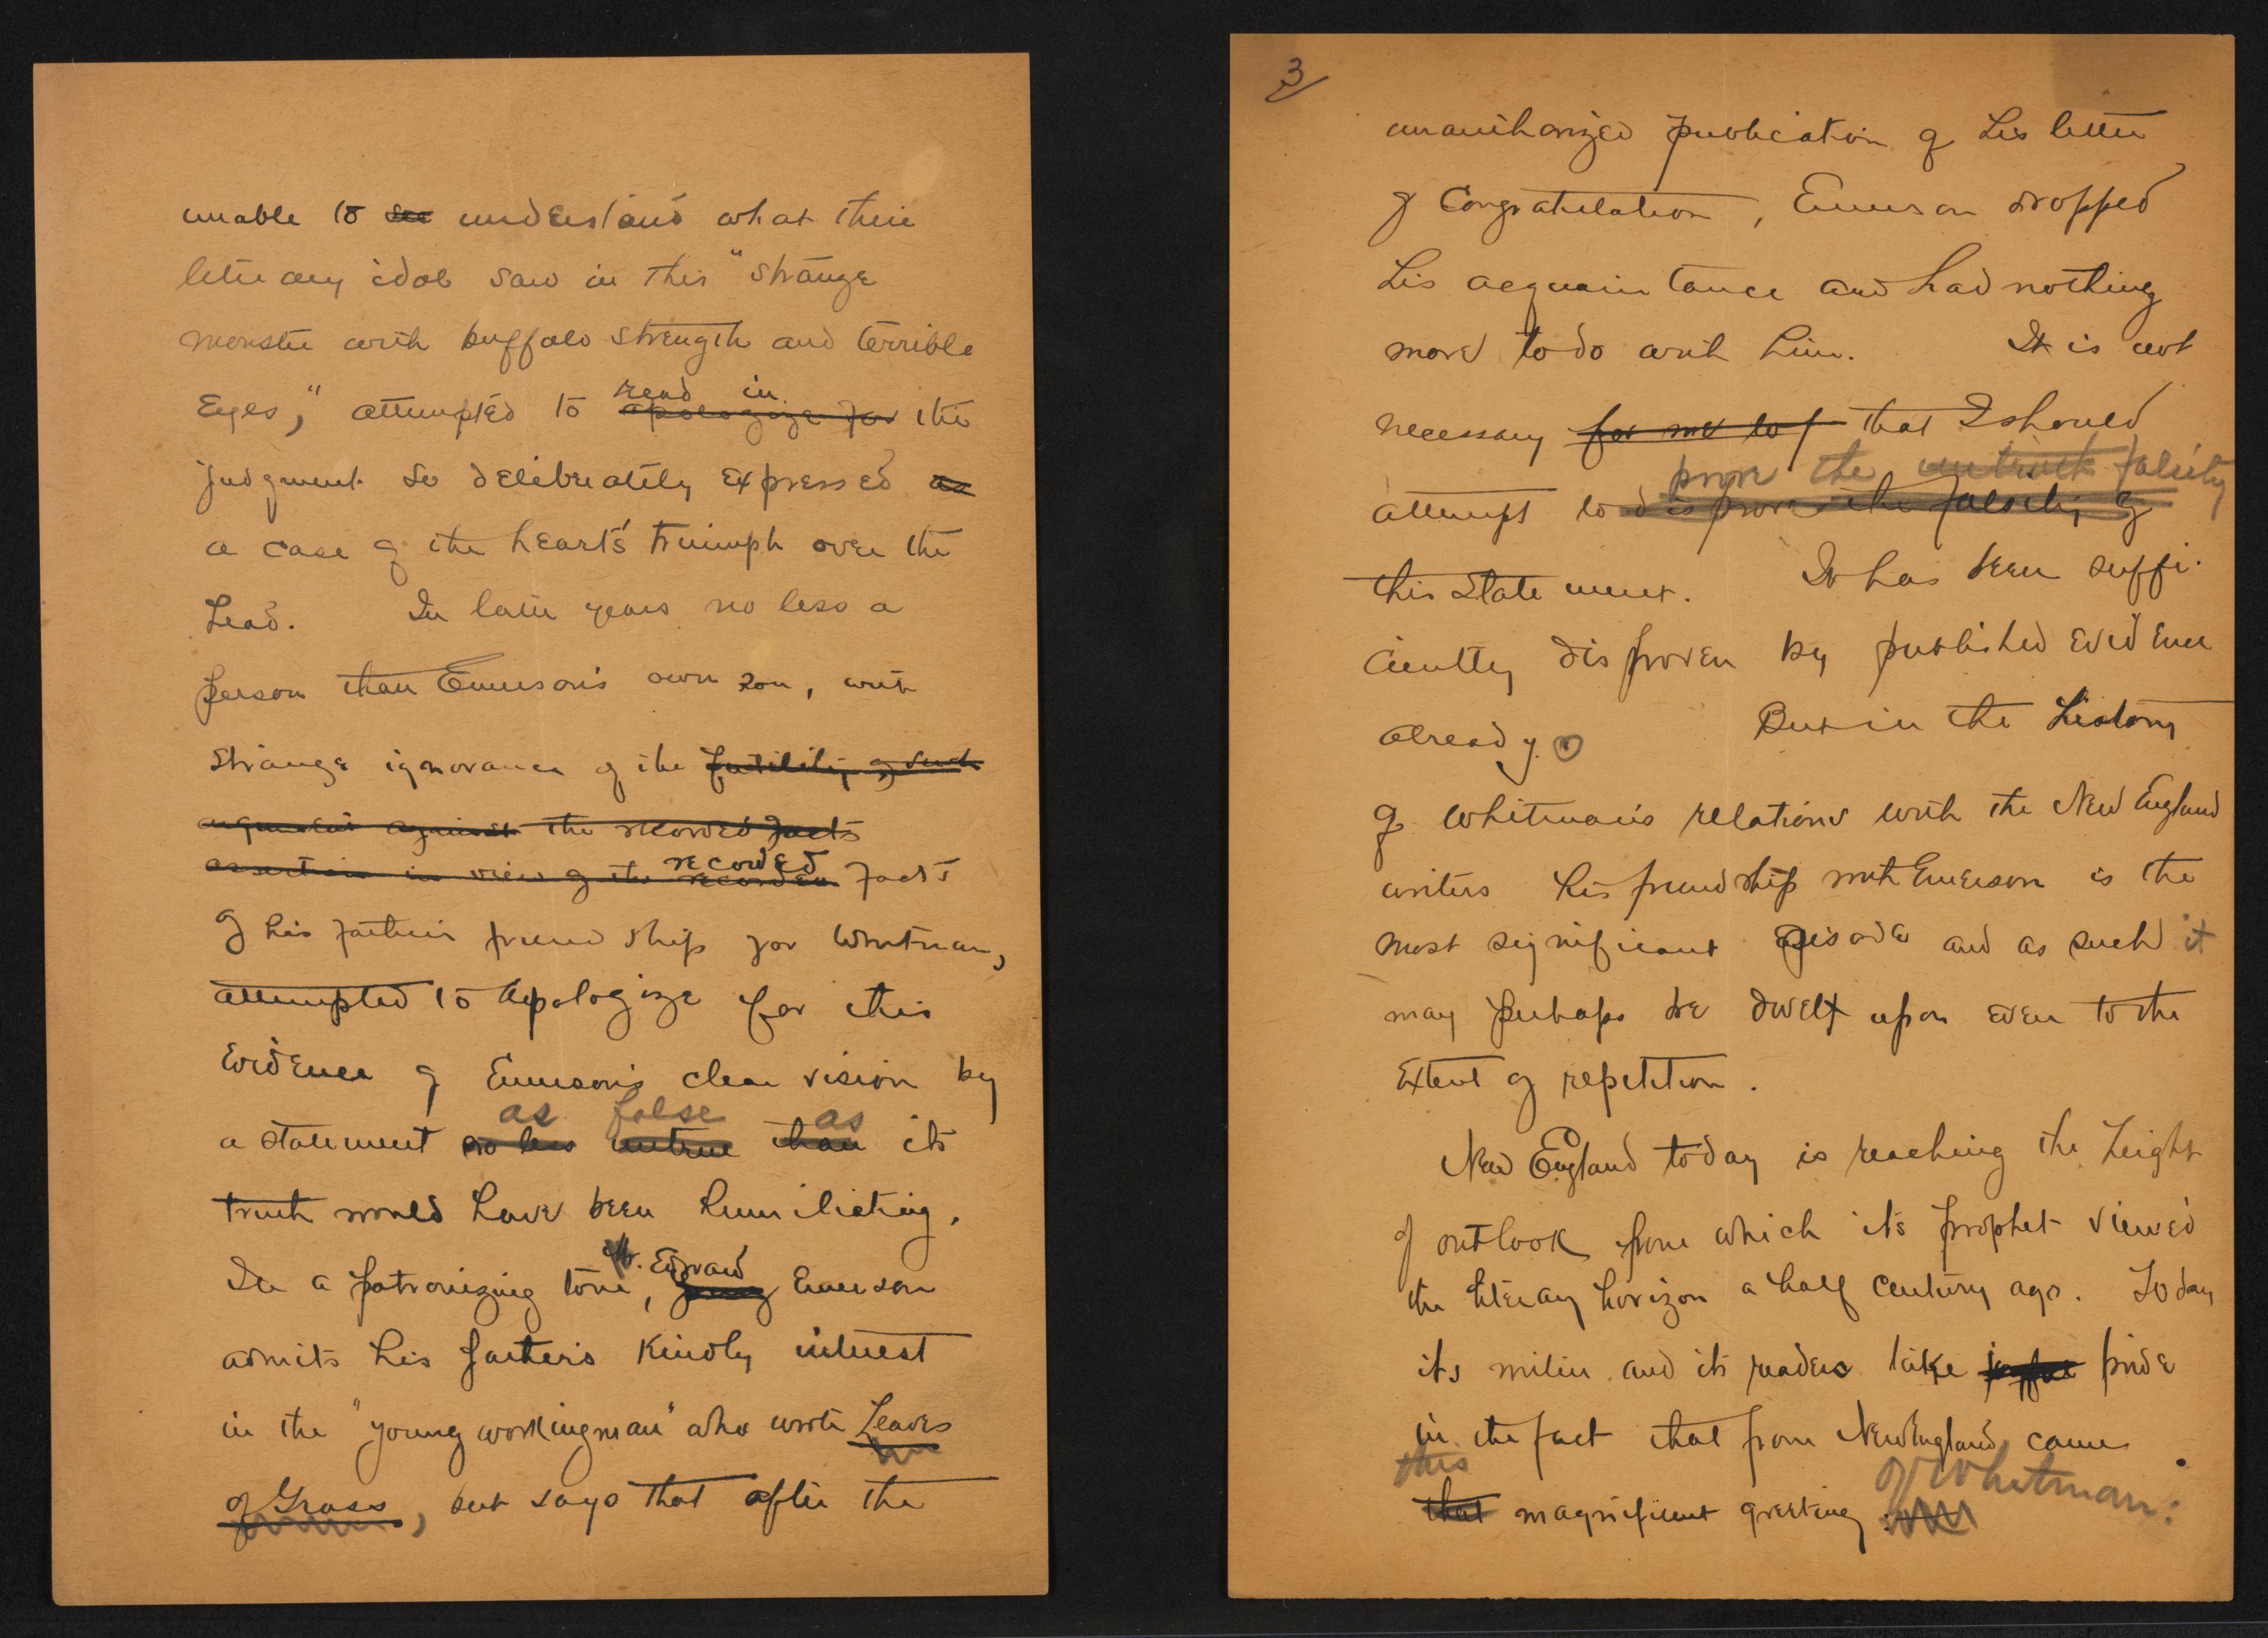 unable to see understand what their
literary idol saw in this "strange
monster with buffalo strength and terrible
read in
Eyes," attempted to apologize for the
judgment so deliberately expressed as
a case of the heart's triumph over the
head. In later years no less a
person than Emerson's own son, with
strange ignorance of the futility of such
argument against the recorded facts
recorded
assertion in view of the recorded facts
of his father's friendship for Whitman,
attempted to apologize for this
Evidence of Emerson's clear vision by
as false as
a statement no less untrue than its
truth would have been humiliating.
Mr. Edward
In a patronizing tone, young Emerson
admits his father's kindly interest
in the "young workingman" who wrote Leaves
of Grass, but says that after the
3
unauthorized publication of his letter
of Congratulation, Emerson dropped
his acquaintance and had nothing
more to do with him. It is not
necessary for me to that I should
prove the untruth falsity
attempt to disprove the falsity of
this statement. It has been suffi-
ciently disproven by published evidence
already. But in the history
of Whitman's relations with the New England
writers his friendship with Emerson is the
most significant episode and as such it
may perhaps be dwelt upon even to the
Extent of repetition.
New England today is reaching the height
of outlook from which its prophet viewed
the literary horizon a half century ago. Today
its writers and its readers take pride
in the fact that from New England came
this of Whitman:
that magnificent greeting: